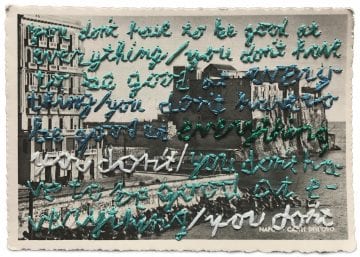 you don't have to be good at
everything/you don't have
to be good at every-
thing/you don't have to
be good at everything
you don't/you don't ha
ve to be good at e-
verything/you don't
CASTEL DELL'OVO